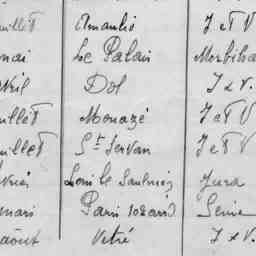 uillet Amanlis I et V
mai Le Palais Morbiha
vril Dol I & V.
uillet Monazé I et V
uillet St Servan I et V
vrier Lons le Saulnier Jura
mars Paris 10e arrd Seine
août Vitré I & V.